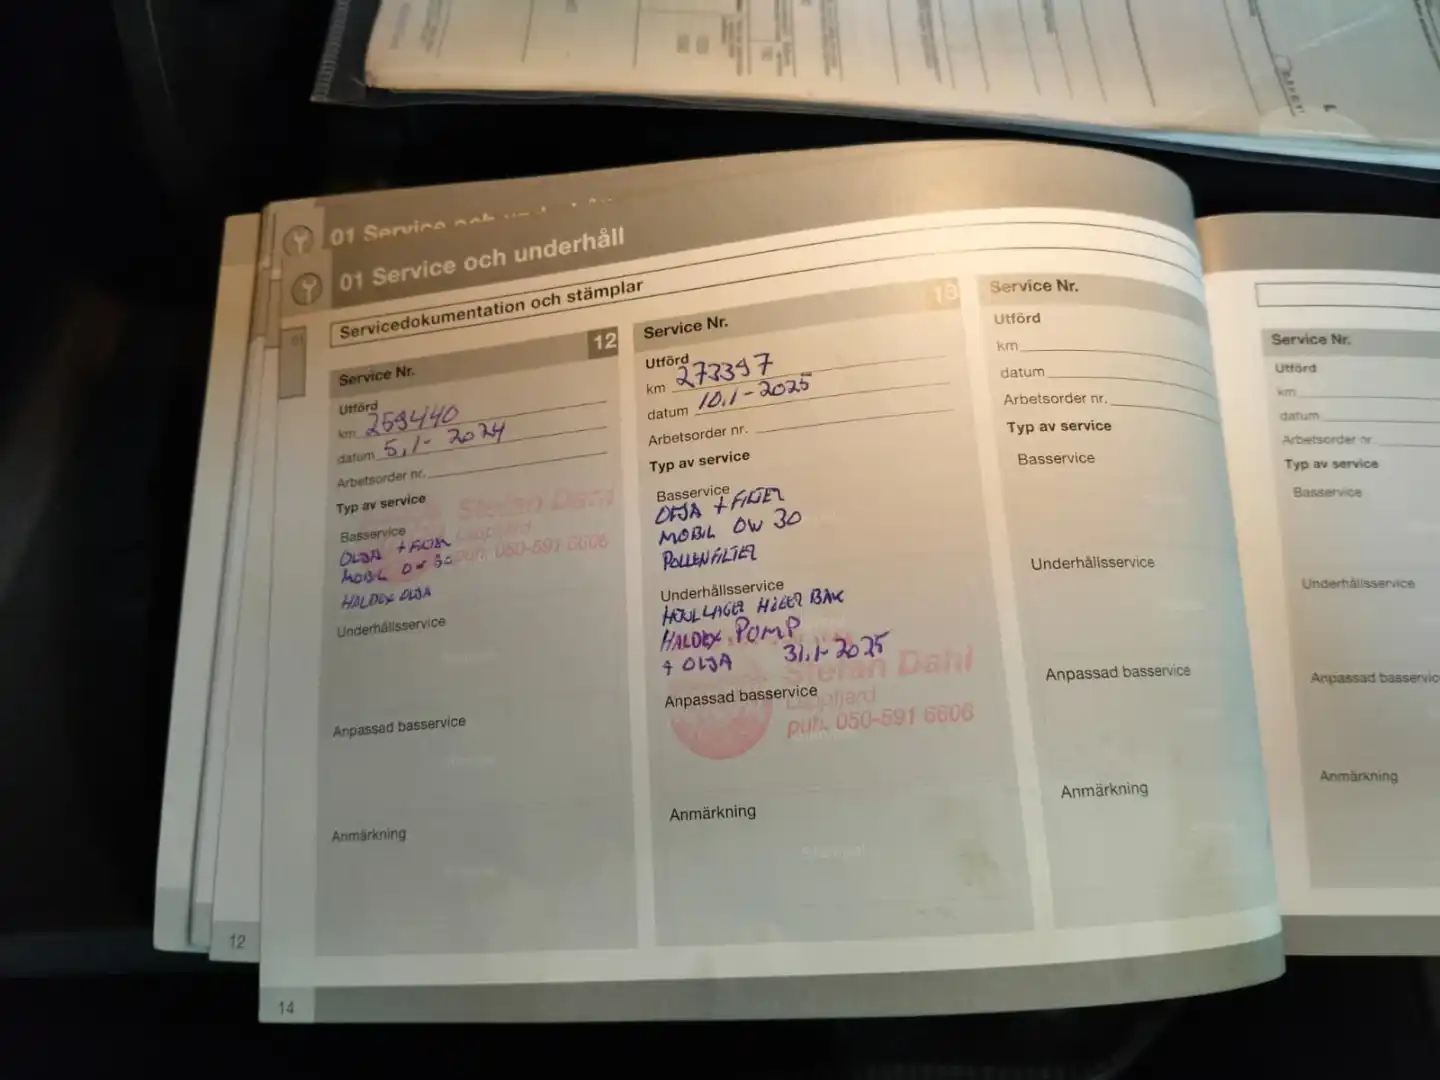 01 Service och
01 Service och underhåll
Servicedokumentation och stämplar
Service Nr. 12
Utförd
km 259440
datum 5.1-2024
Arbetsorder nr.
Typ av service
Stefan Dahl
Lappfjärd
puh. 050-591 6606
Basservice
OLJA + FILTER
MOBIL 0W 30
HALDEX OLJA
Underhållsservice
Anpassad basservice
Anmärkning
Service Nr. 13
Utförd
km 273397
datum 10.1-2025
Arbetsorder nr.
Typ av service
Basservice
OLJA + FILTER
MOBIL 0W 30
POLLENFILTER
Underhållsservice
HJULLAGER HÖGER BAK
HALDEX POMP
+ OLJA 31.1-2025
Stefan Dahl
Lappfjärd
puh. 050-591 6606
Anpassad basservice
Anmärkning
Stämpel
Service Nr.
Utförd
km
datum
Arbetsorder nr.
Typ av service
Basservice
Underhållsservice
Anpassad basservice
Anmärkning
Service Nr.
Utförd
km
datum
Arbetsorder nr.
Typ av service
Basservice
Underhållsservice
Anpassad basservic
Anmärkning
12
14